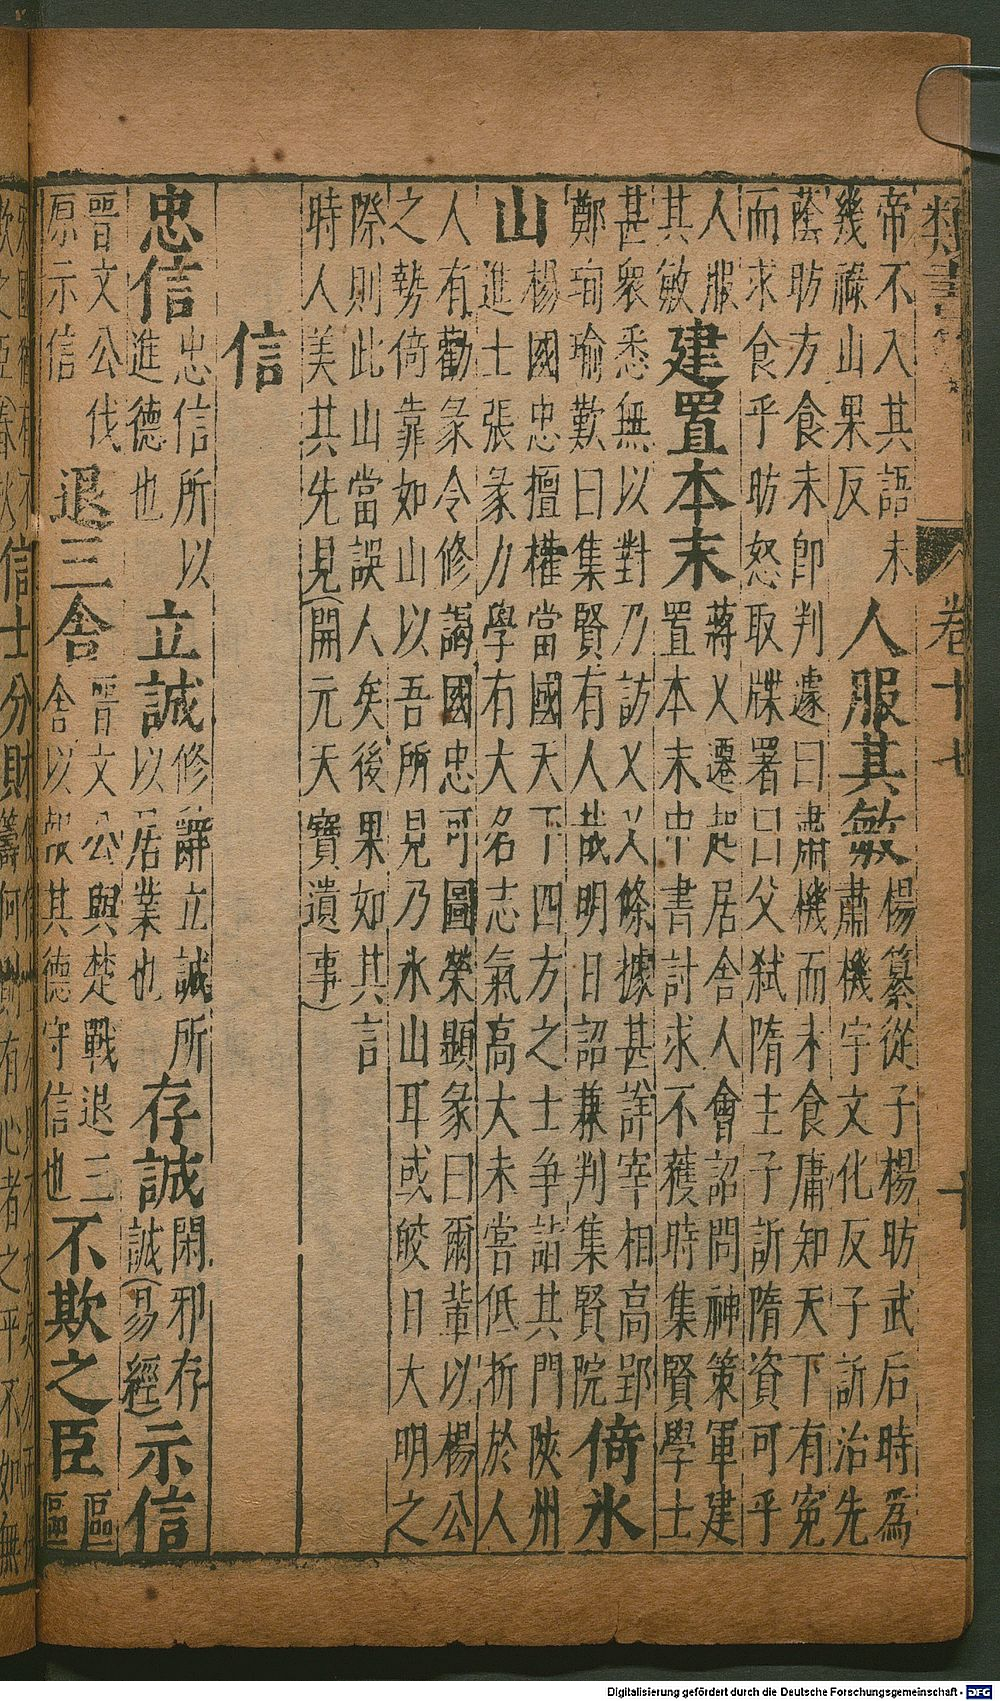 類書
卷十七
十
帝不入其語未
幾祿山果反
人服其敏
楊纂從子楊昉武后時為
肅機宇文化反子訢治先
蔭昉方食未即判遽曰肅機而未食庸知天下有冤
而求食乎昉怒取牒署曰父弒隋主子訢隋資可乎
人服
其敏
建置本末
蔣乂遷起居舍人會詔問神策軍建
置本末中書討求不獲時集賢學士
甚衆悉無以對乃訪乂乂條據甚詳宰相高郢
鄭珣瑜歎曰集賢有人哉明日詔兼判集賢院
倚氷
山
楊國忠擅權當國天下四方之士爭詣其門陝州
進士張彖力學有大名志氣高大未嘗低折於人
人有勸彖令修謁國忠可圖榮顯彖曰爾輩以楊公
之勢倚靠如山以吾所見乃氷山耳或皎日大明之
際則此山當誤人矣後果如其言
時人美其先見(開元天寶遺事)
信
忠信
忠信所以
進德也
立誠
修辭立誠所
以居業也
存誠
閑邪存
誠(易經)
示信
晉文公伐
原示信
退三舍
晉文公與楚戰退三
舍以報其德守信也
不欺之臣
區
區
信士分財
有心者之平不如無
Digitalisierung gefördert durch die Deutsche Forschungsgemeinschaft - DFG